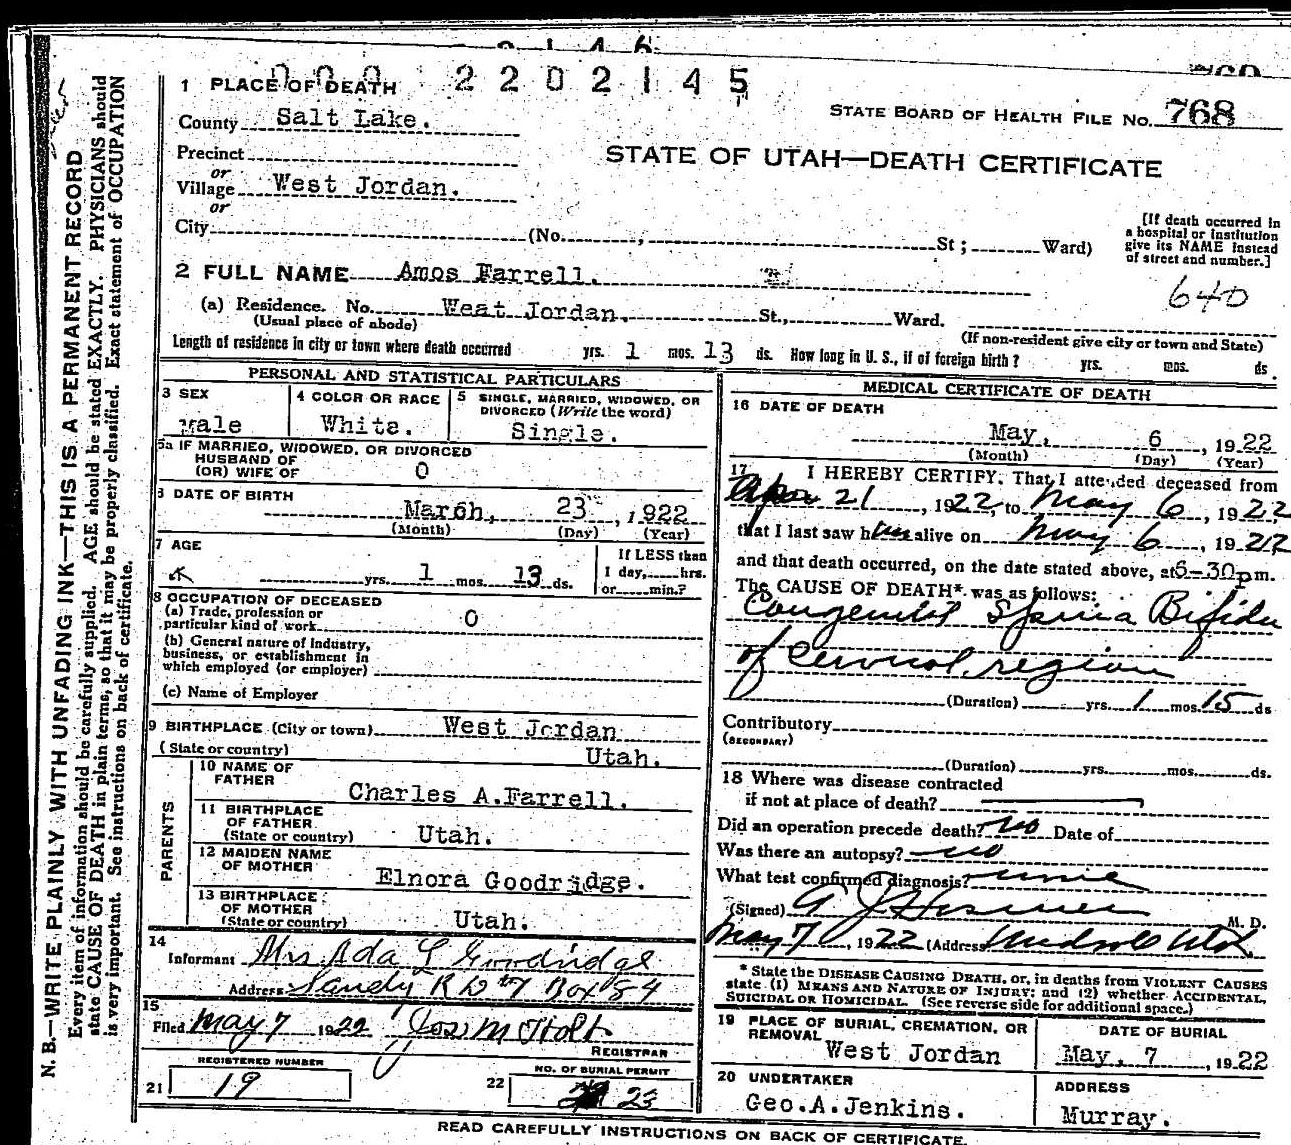 2 1 4 6
769
0 0 0 2 2 0 2 1 4 5
STATE BOARD OF HEALTH FILE NO. 768
STATE OF UTAH—DEATH CERTIFICATE
N. B.—WRITE PLAINLY WITH UNFADING INK—THIS IS A PERMANENT RECORD
Every item of information should be carefully supplied. AGE should be stated EXACTLY. PHYSICIANS should
state CAUSE OF DEATH in plain terms, so that it may be properly classified. Exact statement of OCCUPATION
is very important. See instructions on back of certificate.
1 PLACE OF DEATH
County Salt Lake.
Precinct
or
Village West Jordan.
or
City (No. , St ; Ward)
[If death occurred in
a hospital or institution
give its NAME instead
of street and number.]
2 FULL NAME Amos Farrell.
640
(a) Residence. No. West Jordan. St., Ward.
(Usual place of abode) (If non-resident give city or town and State)
Length of residence in city or town where death occurred yrs. 1 mos. 13 ds. How long in U. S., if of foreign birth? yrs. mos. ds.
PERSONAL AND STATISTICAL PARTICULARS
3 SEX
male
4 COLOR OR RACE
White.
5 SINGLE, MARRIED, WIDOWED, OR
DIVORCED (Write the word)
Single.
5a IF MARRIED, WIDOWED, OR DIVORCED
HUSBAND OF
(OR) WIFE OF 0
6 DATE OF BIRTH
Mar6h, 23 , 1922
(Month) (Day) (Year)
7 AGE
yrs. 1 mos. 13 ds.
If LESS than
1 day, hrs.
or min.?
8 OCCUPATION OF DECEASED
(a) Trade, profession or
particular kind of work 0
(b) General nature of Industry,
business, or establishment in
which employed (or employer)
(c) Name of Employer
9 BIRTHPLACE (City or town) West Jordan
(State or country) Utah.
PARENTS
10 NAME OF
FATHER Charles A.Farrell.
11 BIRTHPLACE
OF FATHER
(State or country) Utah.
12 MAIDEN NAME
OF MOTHER Elnora Goodridge.
13 BIRTHPLACE
OF MOTHER
(State or country) Utah.
14
Informant Mrs Ada L Goodridge
Address Sandy R D #7 Box 84
15
Filed May 7 1922 Jos M Holt
REGISTRAR
REGISTERED NUMBER
21 19
NO. OF BURIAL PERMIT
22 23
MEDICAL CERTIFICATE OF DEATH
16 DATE OF DEATH
May, 6 , 1922
(Month) (Day) (Year)
17 I HEREBY CERTIFY, That I attended deceased from
Apr 21 , 1922, to May 6 , 1922
that I last saw him alive on May 6 , 1922
and that death occurred, on the date stated above, at 6-30 p m.
The CAUSE OF DEATH* was as follows:
Congenital Spina Bifida
of Cervical region
(Duration) yrs. 1 mos. 15 ds
Contributory
(SECONDARY)
(Duration) yrs. mos. ds.
18 Where was disease contracted
if not at place of death?
Did an operation precede death? No Date of
Was there an autopsy? no
What test confirmed diagnosis? none
(Signed) M. D.
May 7 , 1922 (Address Midvale Utah
* State the DISEASE CAUSING DEATH, or, in deaths from VIOLENT CAUSES
state (1) MEANS AND NATURE OF INJURY; and (2) whether ACCIDENTAL,
SUICIDAL OR HOMICIDAL. (See reverse side for additional space.)
19 PLACE OF BURIAL, CREMATION, OR
REMOVAL West Jordan
DATE OF BURIAL
May, 7 , 1922
20 UNDERTAKER
Geo.A.Jenkins.
ADDRESS
Murray.
READ CAREFULLY INSTRUCTIONS ON BACK OF CERTIFICATE.